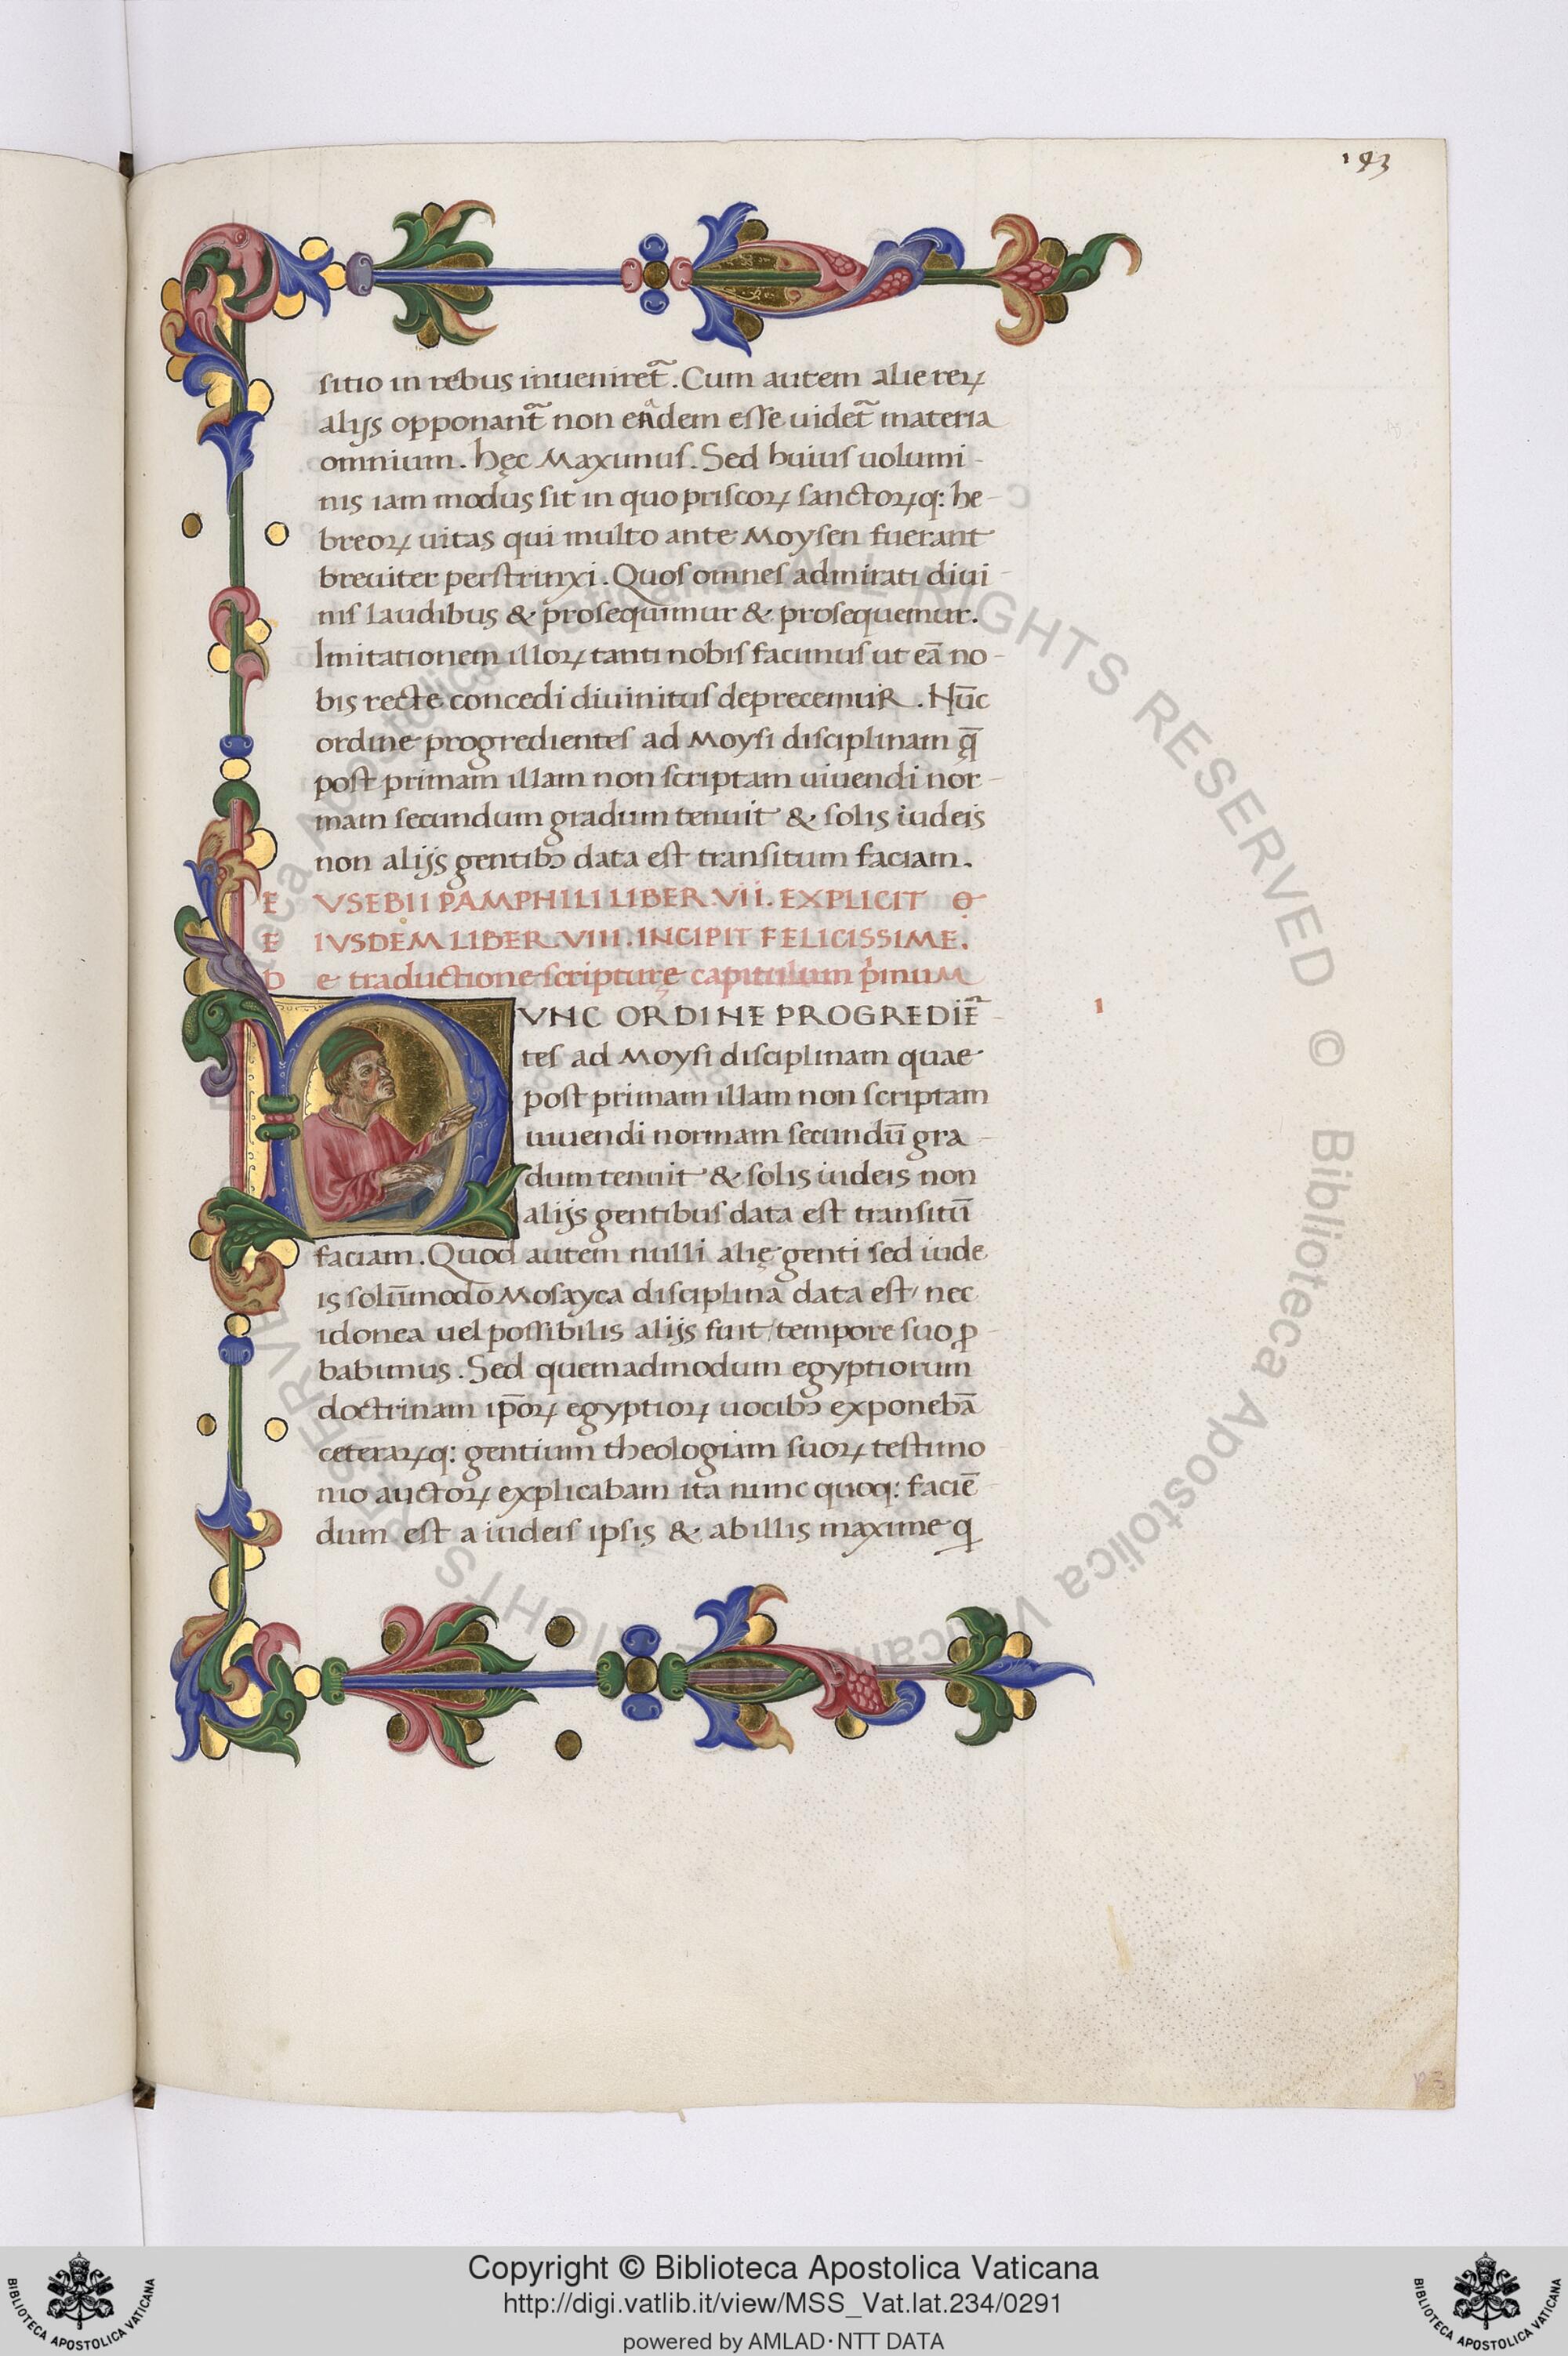 193
sitio in rebus inueniret᷑. Cum autem alie reꝝ
alijs opponant᷑ non eadem esse uidet᷑ materia
omnium. hęc Maximus. Sed huius uolumi-
nis iam modus sit in quo priscoꝝ sanctoꝝq: he-
breoꝝ uitas qui multo ante Moysen fuerant
breuiter perstrinxi. Quos omnes admirati diui-
nis laudibus & prosequimur & prosequemur.
Imitationem illoꝝ tanti nobis facimus ut eā no-
bis recte concedi diuinitus deprecemuR. Nūc
ordine progredientes ad Moysi disciplinam q̄
post primam illam non scriptam uiuendi nor-
mam secundum gradum tenuit & solis iudeis
non alijs gentibꝰ data est transitum faciam.
EVSEBII PAMPHILI LIBER.VII.EXPLICIT
EIVSDEM LIBER.VIII.INCIPIT FELICISSIME.
De traductione scripturę capitulum p̍inuM
NVNC ORDINE PROGREDIĒ-
1
tes ad Moysi disciplinam quae
post primam illam non scriptam
uiuendi normam secundū gra-
dum tenuit & solis iudeis non
alijs gentibus data est transitū
faciam. Quod autem nulli alię genti sed iude
is solūmodo Mosayca disciplina data est/ nec
idonea uel possibilis alijs fuit/ tempore suo ꝓ-
babimus. Sed quemadmodum egyptiorum
doctrinam ip̄oꝝ egyptioꝝ uocibꝰ exponebā
ceteraꝝq: gentium theologiam suoꝝ testimo
nio auctoꝝ explicabam ita nunc quoq: faciē-
dum est a iudeis ipsis & ab illis maxime ꝗ
© Biblioteca Apostolica Vaticana ALL RIGHTS RESERVED
Copyright © Biblioteca Apostolica Vaticana
http://digi.vatlib.it/view/MSS_Vat.lat.234/0291
powered by AMLAD·NTT DATA
BIBLIOTECA APOSTOLICA VATICANA
BIBLIOTECA APOSTOLICA VATICANA